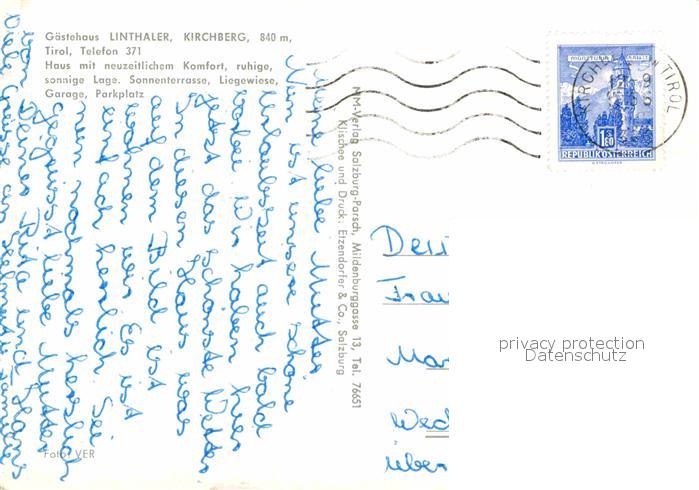 Gästehaus LINTHALER, KIRCHBERG, 840 m,
Tirol, Telefon 371
Haus mit neuzeitlichem Komfort, ruhige,
sonnige Lage. Sonnenterrasse, Liegewiese,
Garage, Parkplatz
Meine liebe Mutter,
Nun ist unsere schöne
Urlaubszeit auch bald
vorbei Wir haben hier
jetzt das schönste Wetter
In diesem Haus was
auf dem Bild ist
wohnen wir Es ist
einfach herrlich Sei
nun nochmals herzlich
gegrüsst liebe Mutter
von Deiner und Hans
Viele Grüsse an
MM-Verlag Salzburg-Parsch, Mildenburggasse 13, Tel. 76651
Klischee und Druck: Etzendorfer & Co., Salzburg
Foto: VER
MÜNZTURM HALL I. T.
1.80
REPUBLIK ÖSTERREICH
KIRCH TIROL
Frau
über
privacy protection
Datenschutz